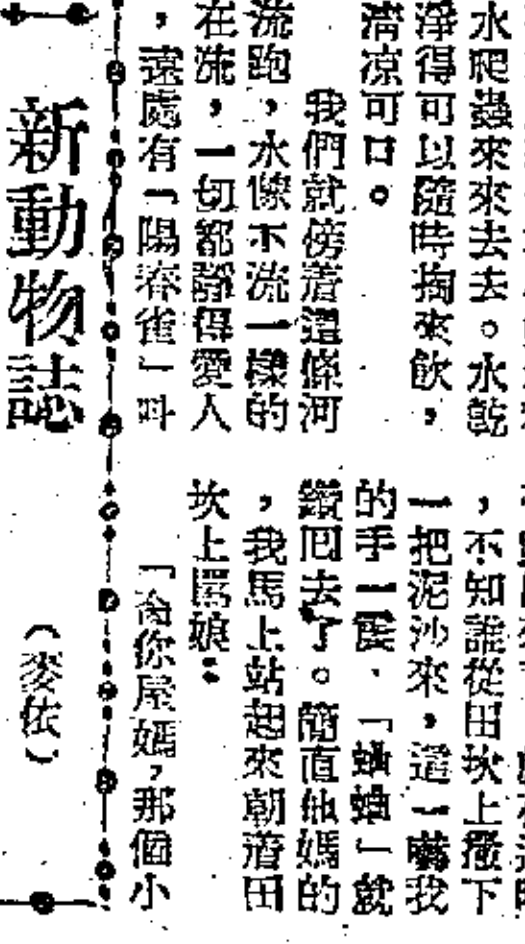 水爬蟲來來去去。水乾
淨得可以隨時掏來飲，
清凉可口。
我們就傍着這條河
流跑，水像不流一樣的
在流，一切都靜得愛人
，遠處有「陽春雀」叫
，不知誰從田坎上撒下
一把泥沙來，這一嚇我
的手一震，「蛐蛐」就
鑽囘去了。簡直他媽的
，我馬上站起來朝着田
坎上罵娘：
你屋媽，那個小
新動物誌
（麥依）